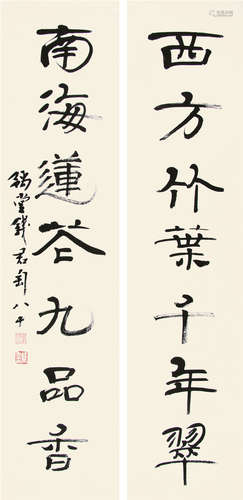 西方竹葉千年翠
南海蓮花九品香
錢君匋八十